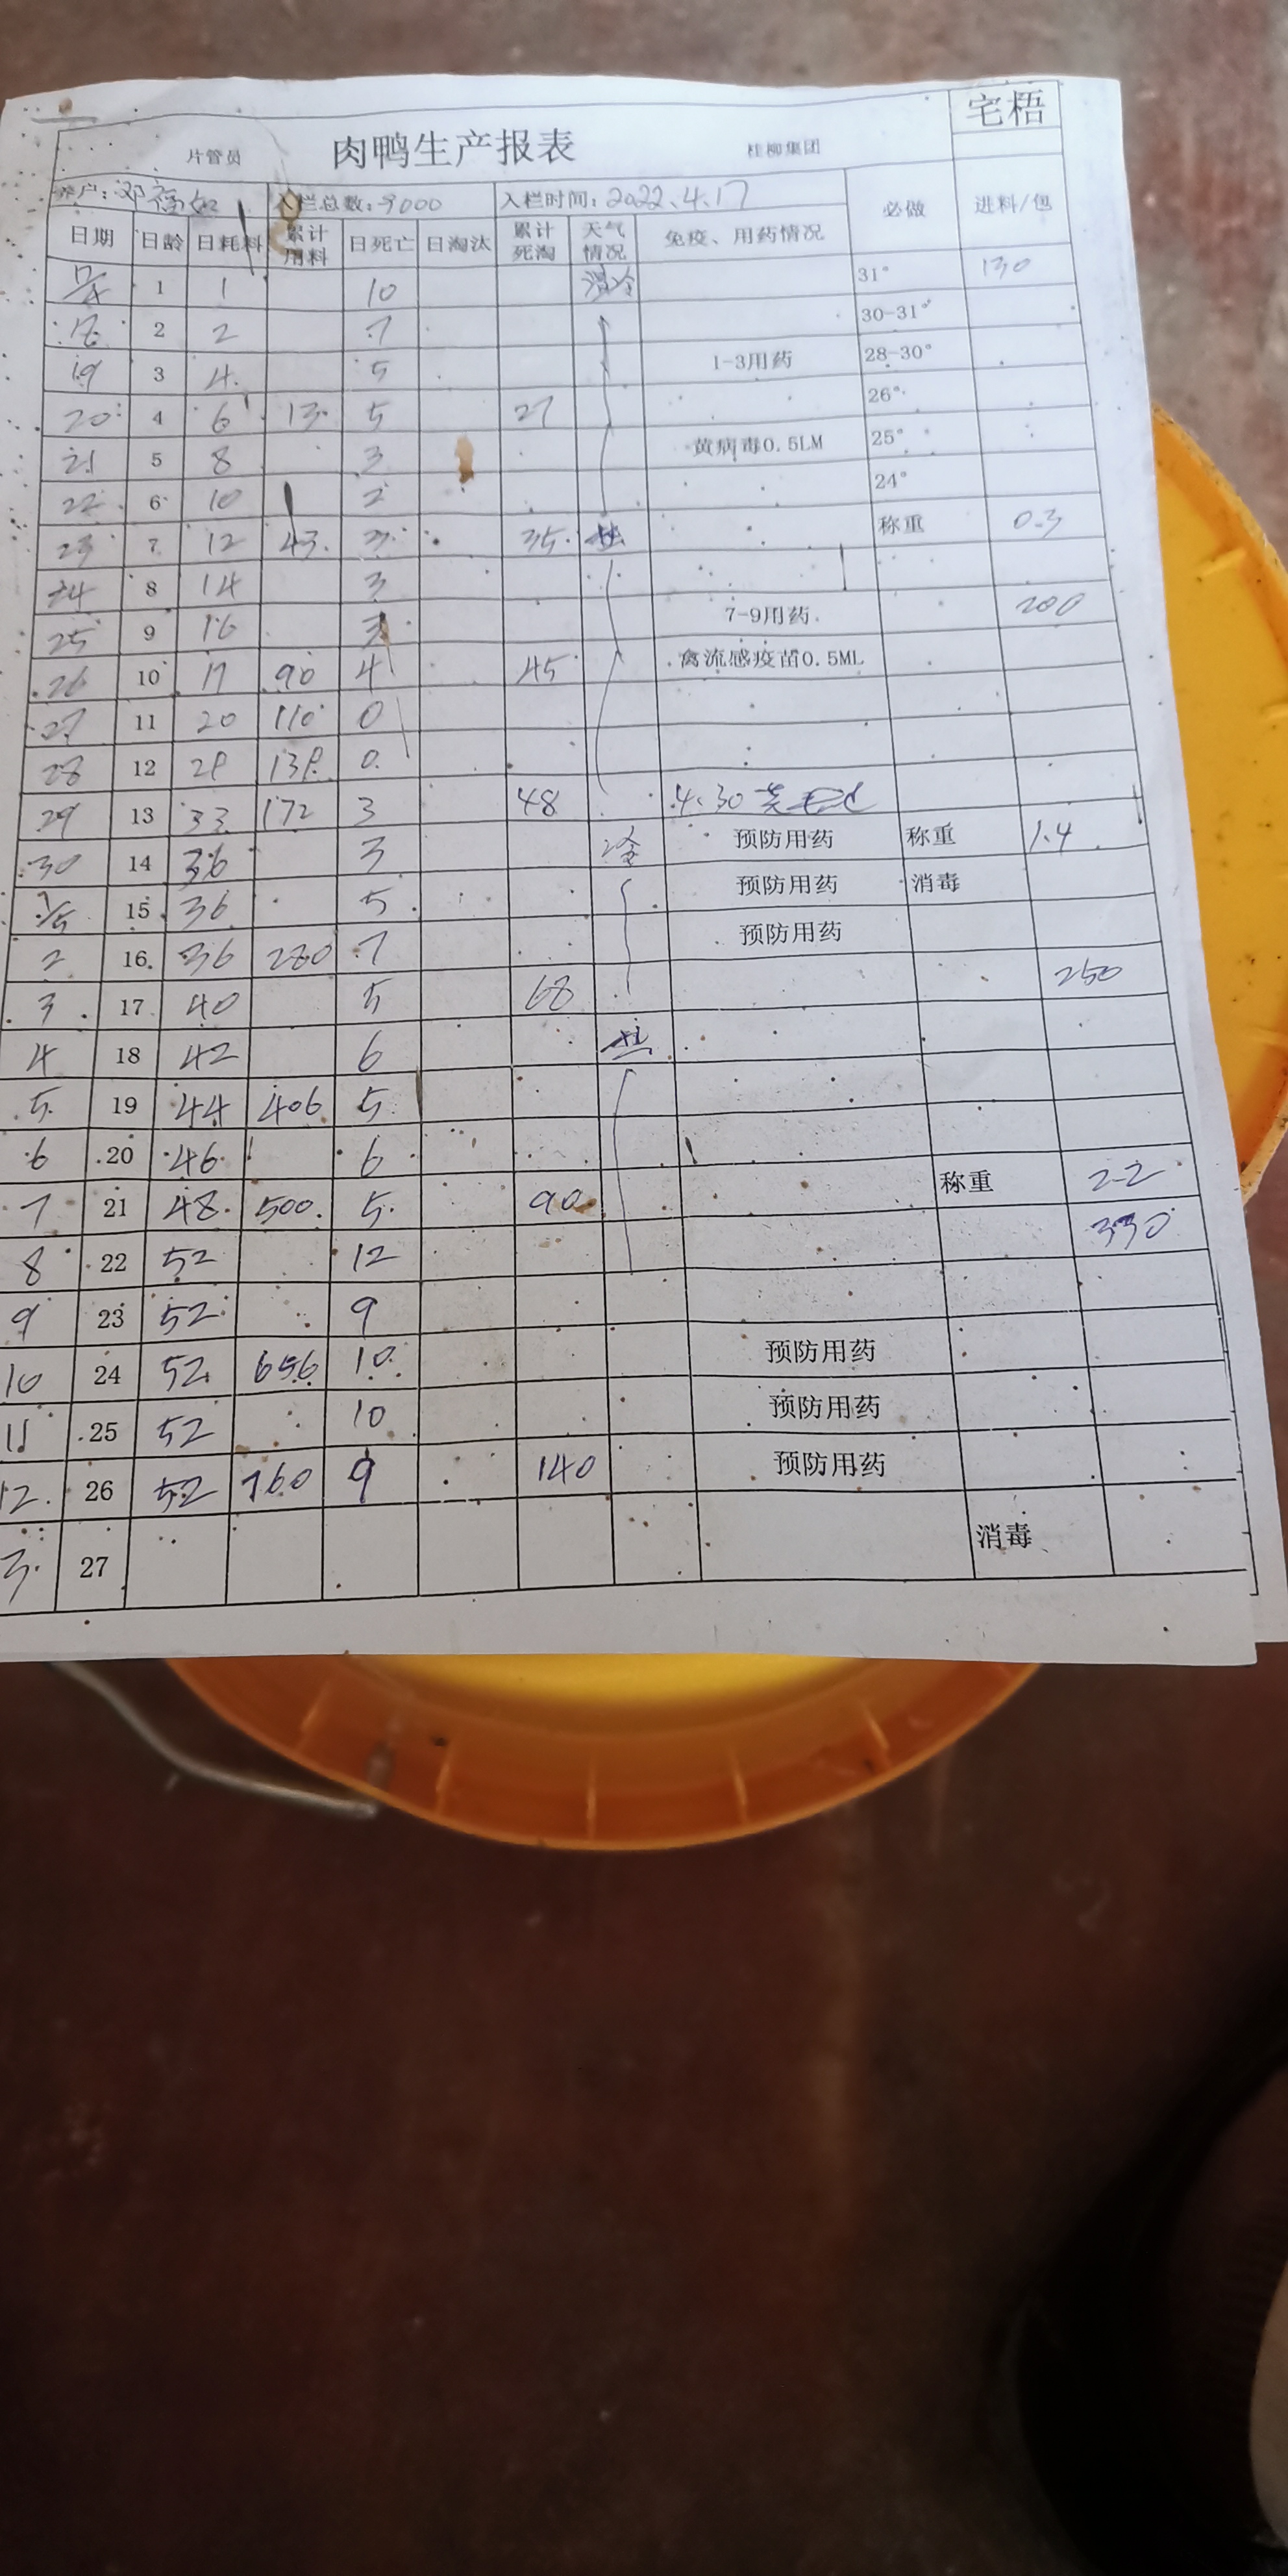 宅梧
片管员 肉鸭生产报表 桂柳集团
养户: 邓 入栏总数: 9000 入栏时间: 2022.4.17 必做 进料/包
日期 日龄 日耗料 累计用料 日死亡 日淘汰 累计死淘 天气情况 免疫、用药情况
17/4 1 1 10 31° 130
18 2 2 7 30-31°
19 3 4 5 1-3用药 28-30°
20 4 6 13 5 27 26°
21 5 8 3 黄病毒0.5LM 25°
22 6 10 2 24°
23 7 12 43 3 35 称重 0.3
24 8 14 3
25 9 16 3 7-9用药 200
26 10 17 90 4 45 禽流感疫苗0.5ML
27 11 20 110 0
28 12 28 138 0
29 13 33 172 3 48 4.30
30 14 36 3 冷 预防用药 称重 1.4
1/5 15 36 5 预防用药 消毒
2 16 36 280 7 预防用药
3 17 40 5 68 250
4 18 42 6
5 19 44 406 5
6 20 46 6
7 21 48 500 5 90 称重 2.2
8 22 52 12 330
9 23 52 9
10 24 52 656 10 预防用药
11 25 52 10 预防用药
12 26 52 760 9 140 预防用药
3 27 消毒